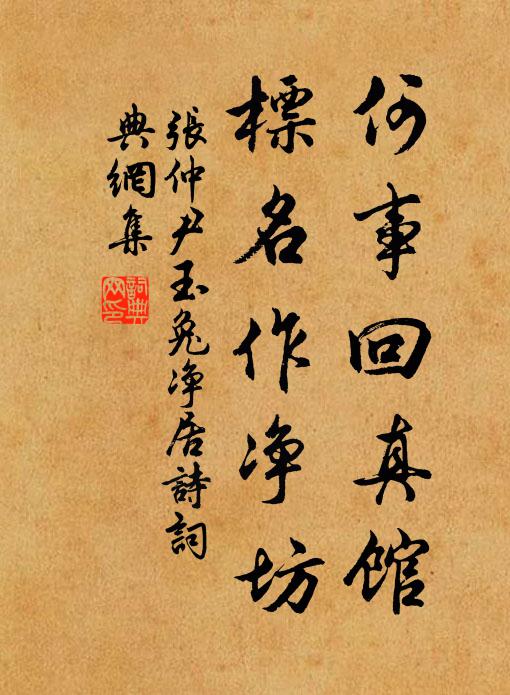 何事回真館
標名作净坊
張仲尹玉兔净居詩詞
典網集
詞典
网印